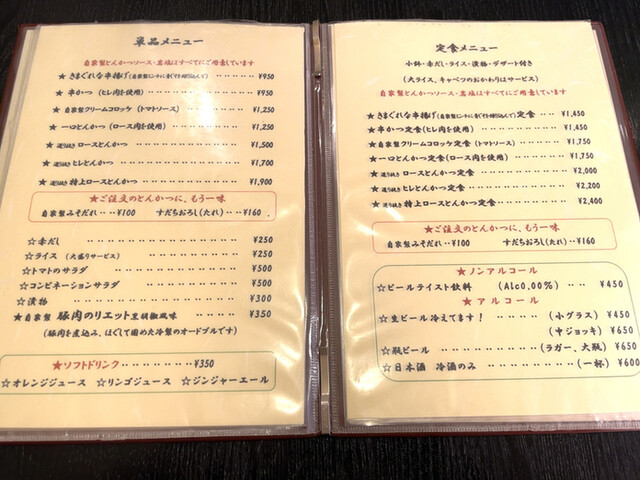 単品メニュー
自家製とんかつソース・岩塩はすべてにご用意しています
★きまぐれな串揚げ ‥ ¥950
★串かつ(ヒレ肉を使用) ‥‥‥‥‥ ¥950
★自家製クリームコロッケ(トマトソース) ‥‥‥ ¥1,250
★一口とんかつ(ロース肉を使用) ‥‥‥‥ ¥1,250
★ ロースとんかつ ‥‥‥‥‥ ¥1,500
★ ヒレとんかつ ‥‥‥‥‥ ¥1,700
★ 特上ロースとんかつ ‥‥‥‥‥ ¥1,900
★ご注文のとんかつに、もう一味
自家製みぞだれ‥¥100 すだちおろし(たれ)‥¥160
☆赤だし ‥‥‥‥‥‥ ¥250
☆ライス (大盛りサービス) ‥‥‥‥‥ ¥250
☆トマトのサラダ ‥‥‥‥‥ ¥500
☆コンビネーションサラダ ‥‥‥‥‥ ¥500
☆漬物 ‥‥‥‥‥‥ ¥300
★自家製 豚肉のリエット黒胡椒風味 ‥‥‥ ¥350
(豚肉を煮込み、ほぐして固めた冷製のオードブルです)
★ソフトドリンク ‥‥‥‥‥ ¥350
☆オレンジジュース ☆リンゴジュース ☆ジンジャーエール
定食メニュー
小鉢・赤だし・ライス・漬物・デザート付き
(大ライス、キャベツのおかわりはサービス)
自家製とんかつソース・岩塩はすべてにご用意しています
★きまぐれな串揚げ 定食 ‥ ¥1,450
★串かつ定食(ヒレ肉を使用) ‥‥‥‥‥ ¥1,450
★自家製クリームコロッケ定食(トマトソース) ‥‥ ¥1,750
★一口とんかつ定食(ロース肉を使用) ‥‥‥ ¥1,750
★ ロースとんかつ定食 ‥‥‥‥‥ ¥2,000
★ ヒレとんかつ定食 ‥‥‥‥‥ ¥2,200
★ 特上ロースとんかつ定食 ‥‥‥‥ ¥2,400
★ご注文のとんかつに、もう一味
自家製みぞれ‥¥100 すだちおろし(たれ)‥¥160
★ノンアルコール
☆ビールテイスト飲料 (Alc0.00%) ‥‥ ¥450
★アルコール
☆生ビール冷えてます! ‥‥‥ (小グラス) ¥450
(中ジョッキ) ¥650
☆瓶ビール ‥‥‥‥ (ラガー、大瓶) ¥650
☆日本酒 冷酒のみ ‥‥‥‥ (一杯) ¥600